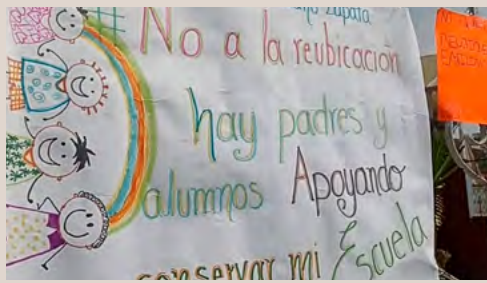 Zapata
No a la reubicación
hay padres y
alumnos Apoyando
conservar mi Escuela